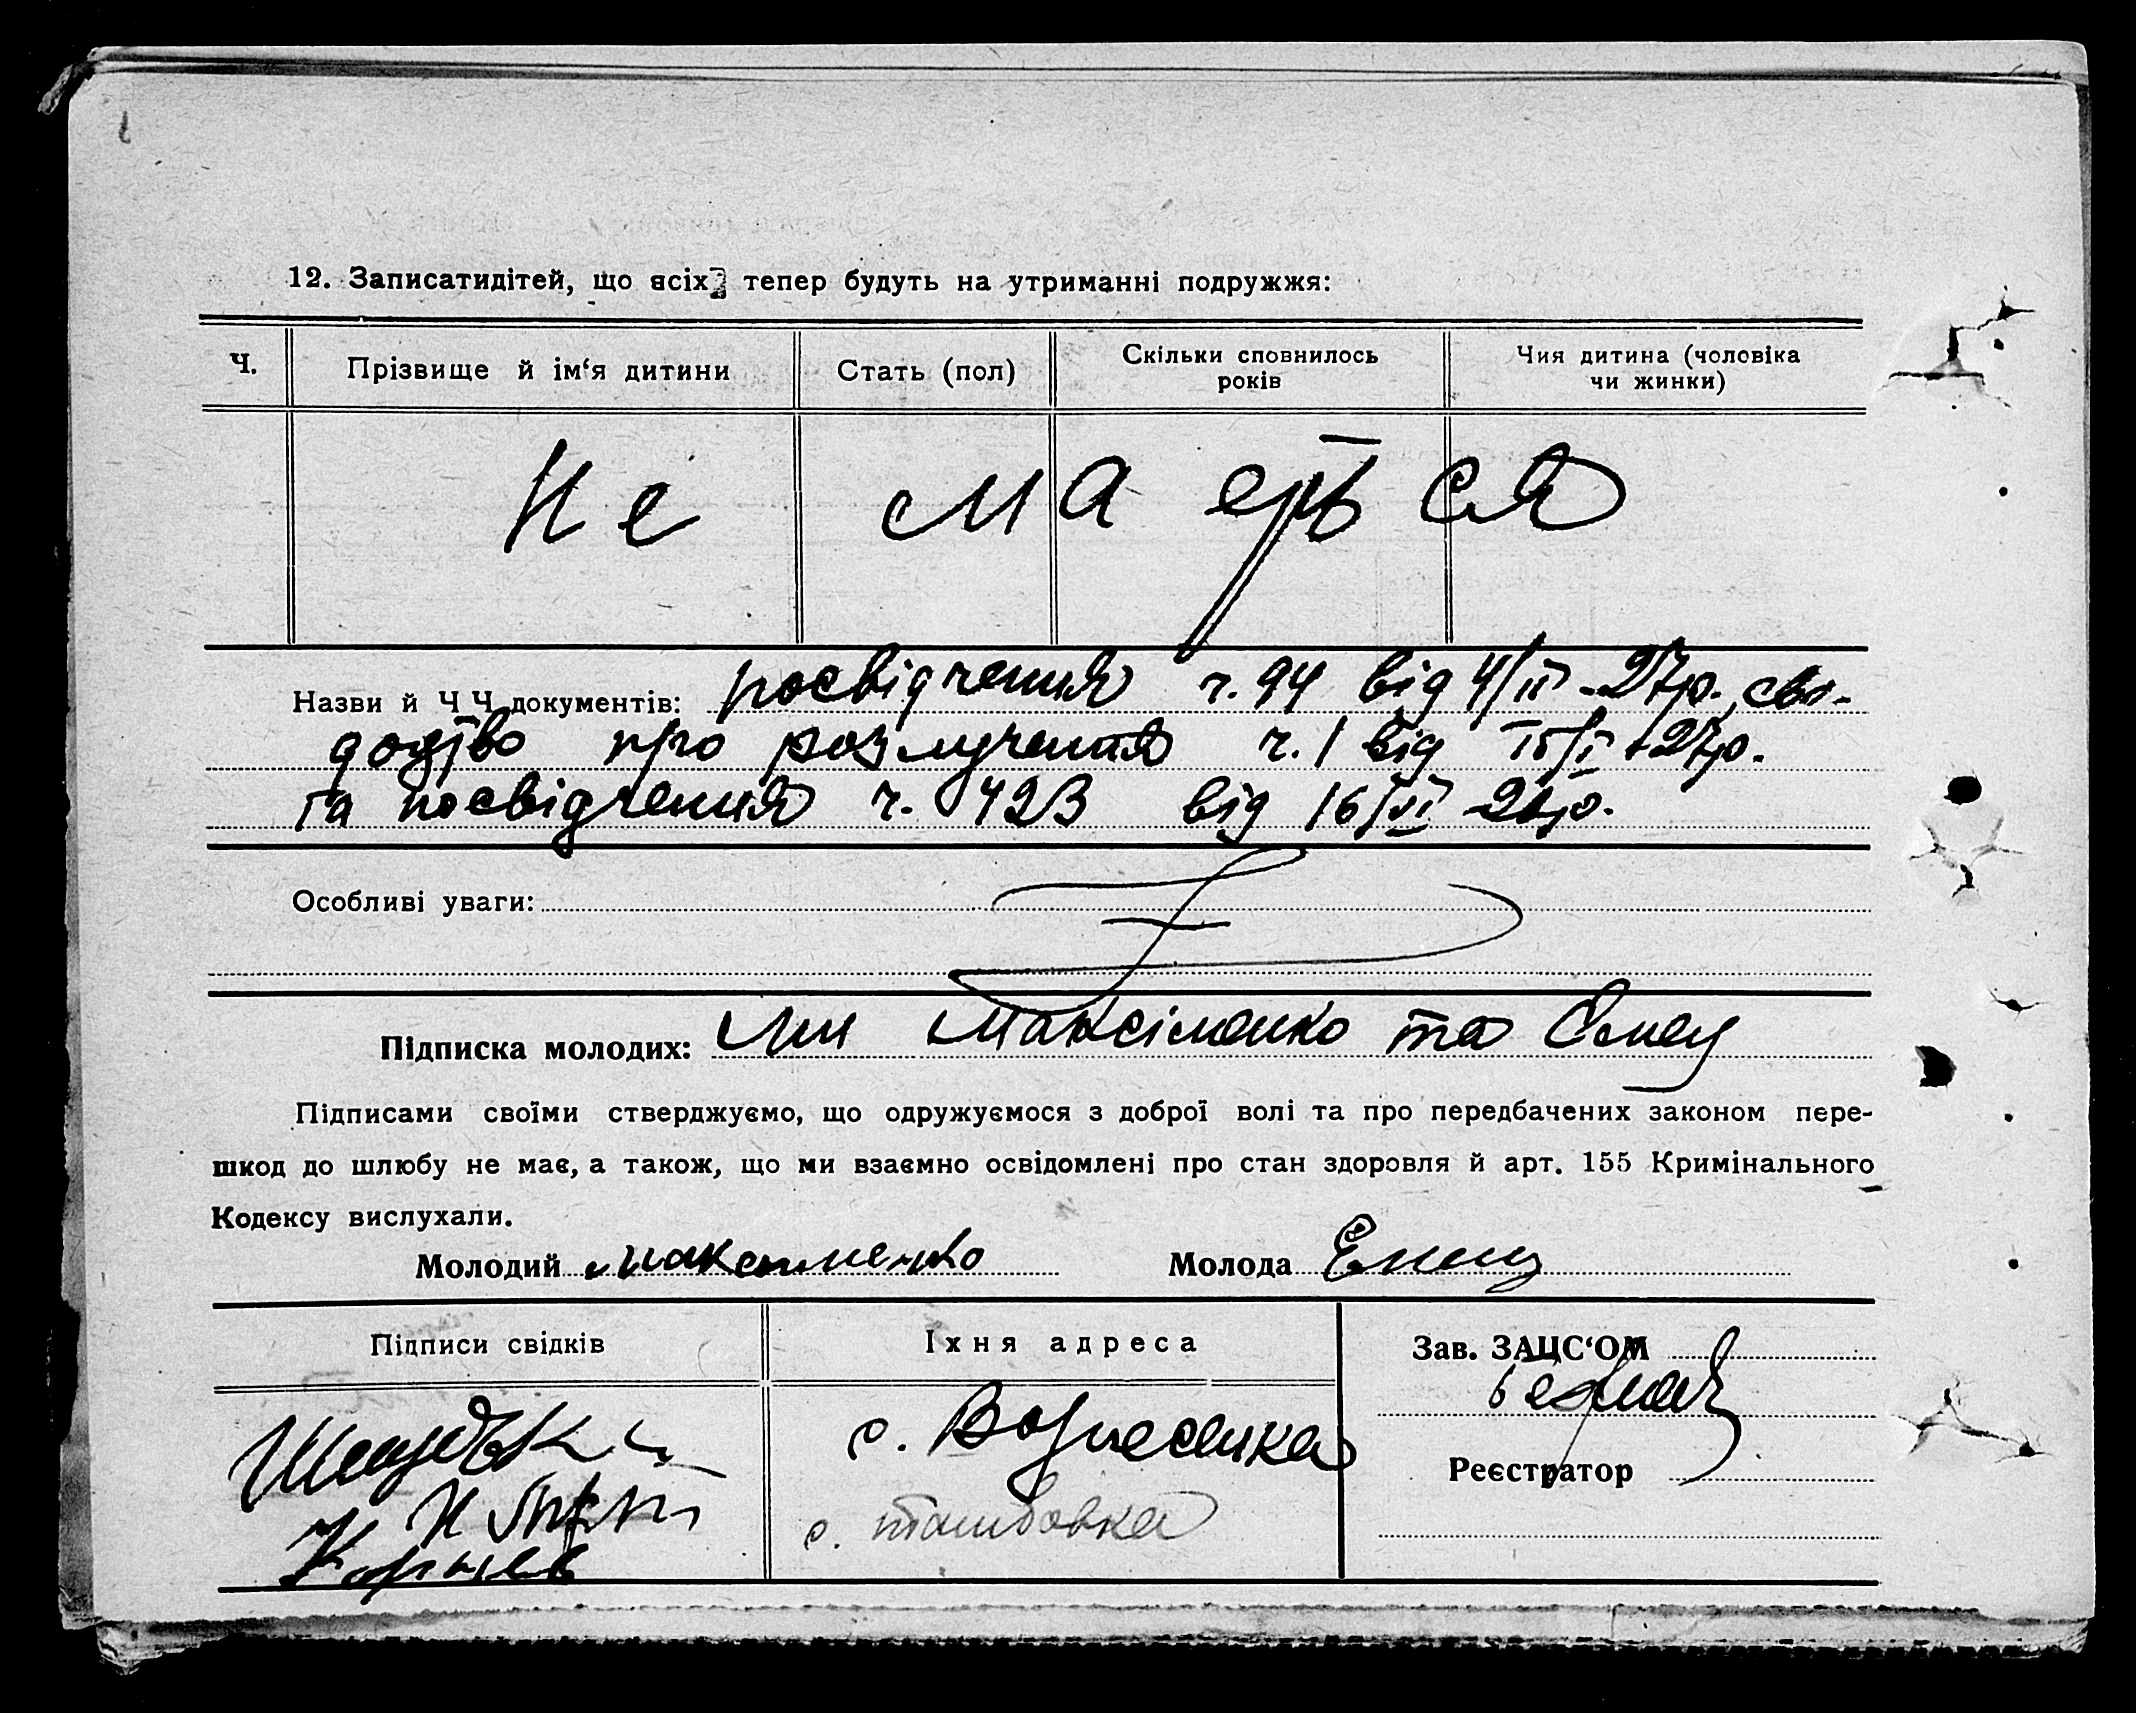 12. Записатидітей, що всіх тепер будуть на утриманні подружжя:
Ч.
Прізвище й ім‘я дитини
Стать (пол)
Скільки сповнилось
років
Чия дитина (чоловіка
чи жинки)
Не мається
Назви й Ч Ч документів: посвідчення ч. 94 від 4/II - 27р., сви-
доцтво про розлучення ч. 1 від 15/I - 27р.
та посвідчення ч. 423 від 16/VI 26р.
Особливі уваги:
Підписка молодих: Ми Максіменко та
Підписами своїми стверджуємо, що одружуємося з доброї волі та про передбачених законом пере-
шкод до шлюбу не має, а також, що ми взаємно освідомлені про стан здоровля й арт. 155 Кримінального
Кодексу вислухали.
Молодий Максименко Молода
Підписи свідків
Їхня адреса
Зав. ЗАЦС‘ОМ
с. Вознесенка
Реєстратор
с. Ташбовка